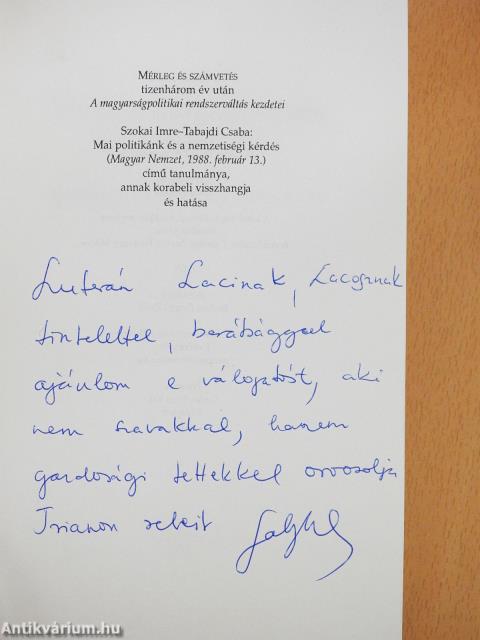 MÉRLEG ÉS SZÁMVETÉS
tizenhárom év után
A magyarságpolitikai rendszerváltás kezdetei
Szokai Imre–Tabajdi Csaba:
Mai politikánk és a nemzetiségi kérdés
(Magyar Nemzet, 1988. február 13.)
című tanulmánya,
annak korabeli visszhangja
és hatása
Luterán Lacinak,
tisztelettel, barátsággal
ajánlom e válogatást, aki
nem szavakkal, hanem
gazdasági tettekkel orvosolja
Trianon sebeit
Antikvárium.hu